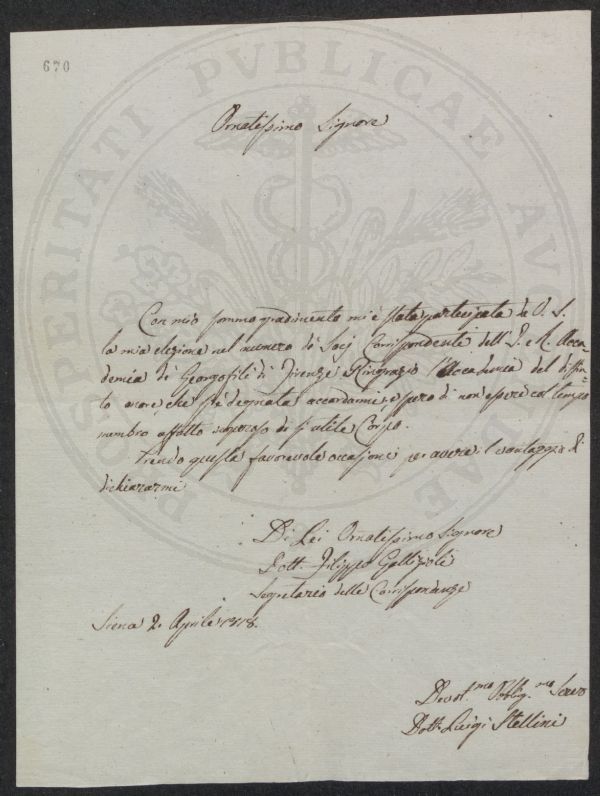 670
PROSPERITATI PVBLICAE AVGENDAE
Ornatissimo Signore
Con mio sommo gradimento mi è stata partecipata da V. S.
la mia elezione nel numero di Socj Corrispondenti dell'I. e R. Acca-
demia de Georgofili di Firenze. Ringrazio l'Accademia del distin-
to onore, che s'è degnata accordarmi, e spero di non essere col tempo
membro affatto di sì utile Corpo.
Prendo questa favorevole occasione per avere il vantaggio di
dichiararmi
Di Lei Ornatissimo Signore
Dott. Filippo Gallizioli
Segretario delle Corrispondenze
Siena 2. Aprile 1818.
Devot.mo Obblig.mo Servo
Dott. Luigi Stellini